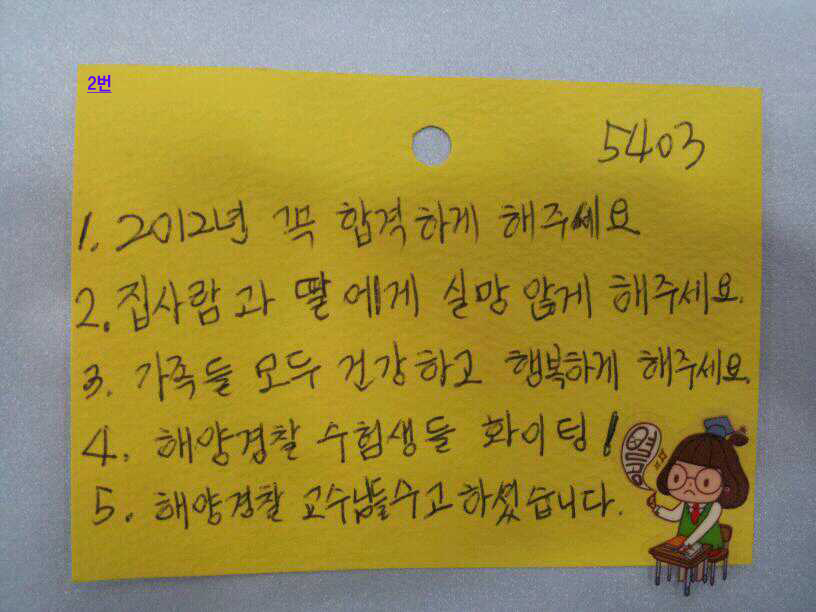 2번
5403
1. 2012년 꼭 합격하게 해주세요
2. 집사람과 딸에게 실망 않게 해주세요.
3. 가족들 모두 건강하고 행복하게 해주세요.
4. 해양경찰 수험생들 화이팅!
5. 해양경찰 교수님들 수고하셨습니다.